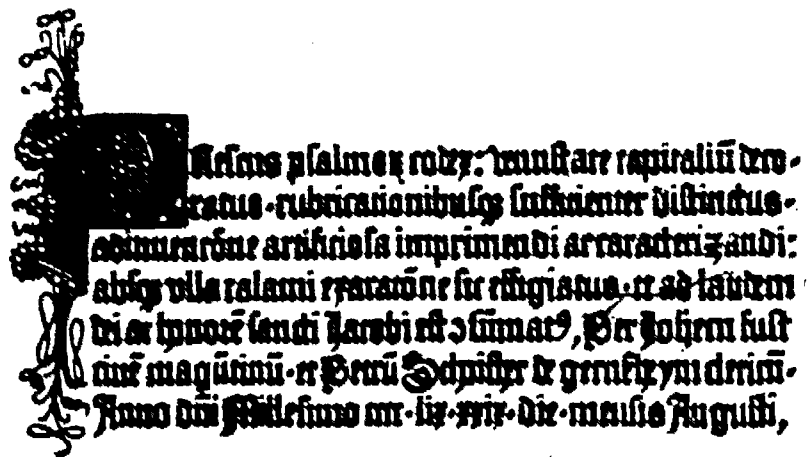 Presens psalmoꝝ codex: venustate capitaliū deco-
ratus. rubricationibusqꝫ sufficienter distinctus.
adinuencōne artificiosa imprimendi ac caracterizandi:
absqꝫ vlla calami exaracōne sic effigiatus. et ad laudem
dei ac honorē sancti Jacobi est ꝯsūmatꝰ, Per Johem fust
ciuē magūtinū. et Petrū
Anno dni Millesimo die. mensis Augusti,